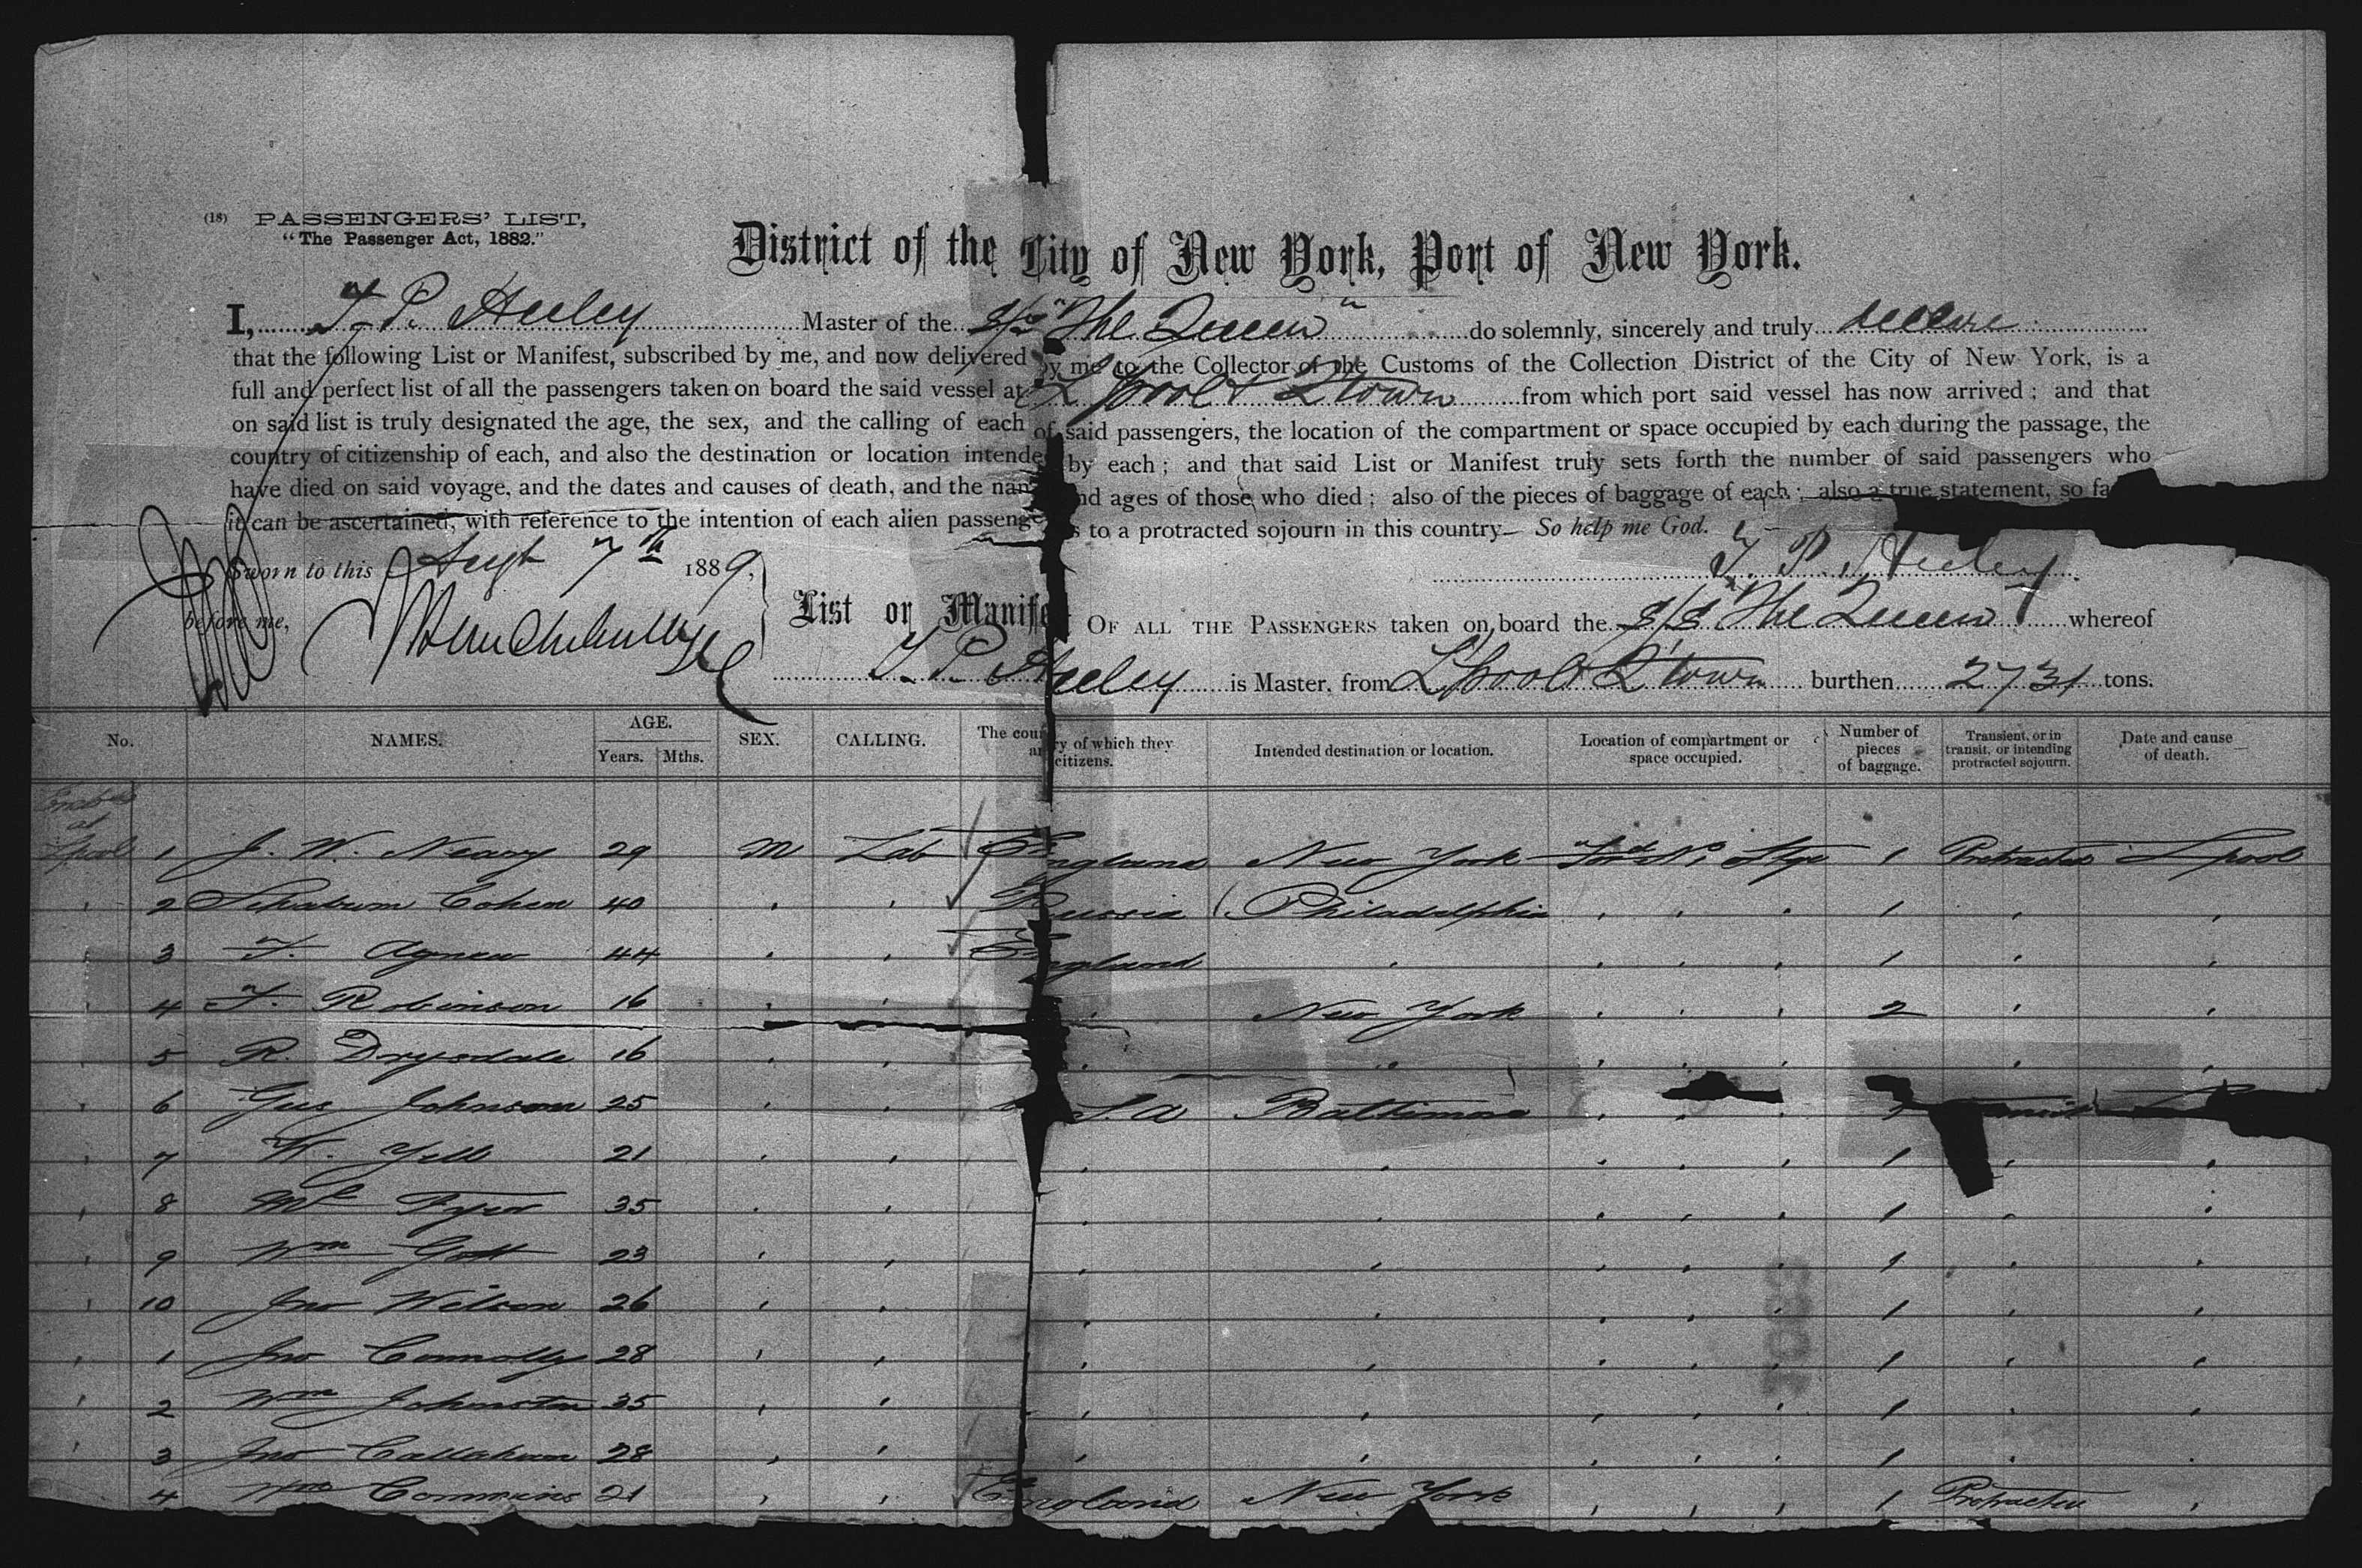 (18) PASSENGERS' LIST,
"The Passenger Act, 1882."
District of the City of New York, Port of New York.
I, T. P. Heeley Master of the S/S "The Queen" do solemnly, sincerely and truly declare
that the following List or Manifest, subscribed by me, and now delivered by me to the Collector of the Customs of the Collection District of the City of New York, is a
full and perfect list of all the passengers taken on board the said vessel at L'pool & Q'town from which port said vessel has now arrived; and that
on said list is truly designated the age, the sex, and the calling of each of said passengers, the location of the compartment or space occupied by each during the passage, the
country of citizenship of each, and also the destination or location intended by each; and that said List or Manifest truly sets forth the number of said passengers who
have died on said voyage, and the dates and causes of death, and the nam nd ages of those who died; also of the pieces of baggage of each; also a true statement, so fa
it can be ascertained, with reference to the intention of each alien passenge s to a protracted sojourn in this country— So help me God.
Sworn to this Augt 7th 1889, T. P. Heeley
before me,
List or Manifest OF ALL THE PASSENGERS taken on board the S/S "The Queen" whereof
T. P. Heeley is Master, from L'pool & Q'town burthen 2731 tons.
No. NAMES. AGE. Years. Mths. SEX. CALLING. The country of which they are citizens. Intended destination or location. Location of compartment or space occupied. Number of pieces of baggage. Transient, or in transit, or intending protracted sojourn. Date and cause of death.
at
L'pool 1 J. W. Neary 29 M Lab England New York 1 Protracted L'pool
2 Cohen 40 " " Russia Philadelphia " " " 1 " "
3 T. Agnew 44 " " England " " " " 1 " "
4 T. Robinson 16 " " " New York " " " 2 " "
5 R. Drysdale 16 " " " " " " " " "
6 Gus Johnson 25 " " S.A Baltimore " " "
7 W. Yell 21 " " " " " " " 1 " "
8 35 " " " " " " " 1 " "
9 Wm Gott 23 " " " " " " " 1 " "
10 Jno Wilson 26 " " " " " " " 1 " "
1 Jno Connolly 28 " " " " " " " 1 " "
2 Wm Johnston 35 " " " " " " " 1 " "
3 Jno Callaham 28 " " " " " " " 1 " "
4 Wm Commins 21 " " England New York " " " 1 Protracted "